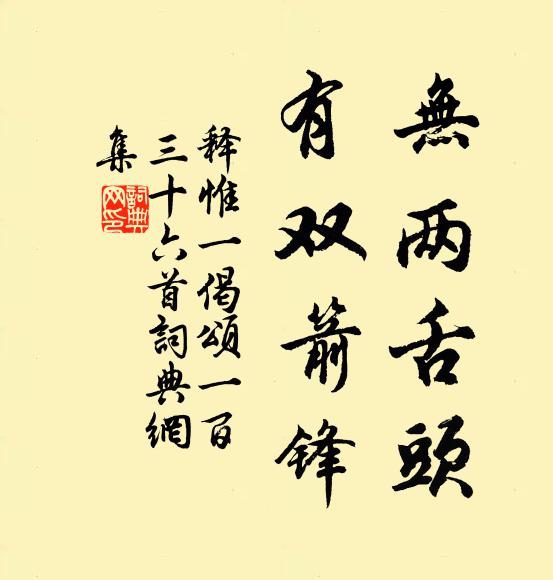 無两舌頭
有双箭锋
释惟一偈頌一百
三十六首詞典網
集
詞典
网印